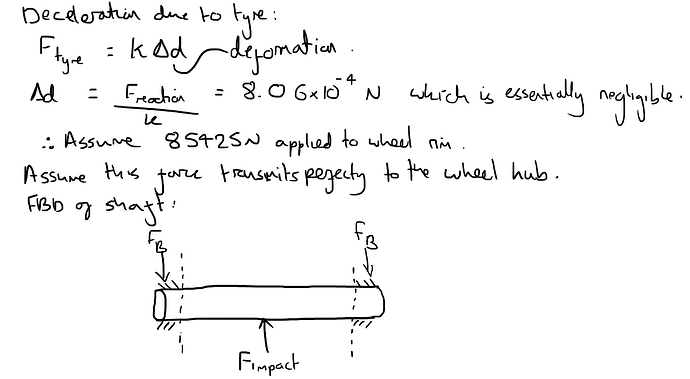 Deceleration due to tyre:
F_tyre = kΔd deformation.
Δd = F_reaction / k = 8.06×10^-4 N which is essentially negligible.
∴ Assume 85425N applied to wheel rim.
Assume this force transmits perfectly to the wheel hub.
FBD of shaft:
F_B F_B
F_impact